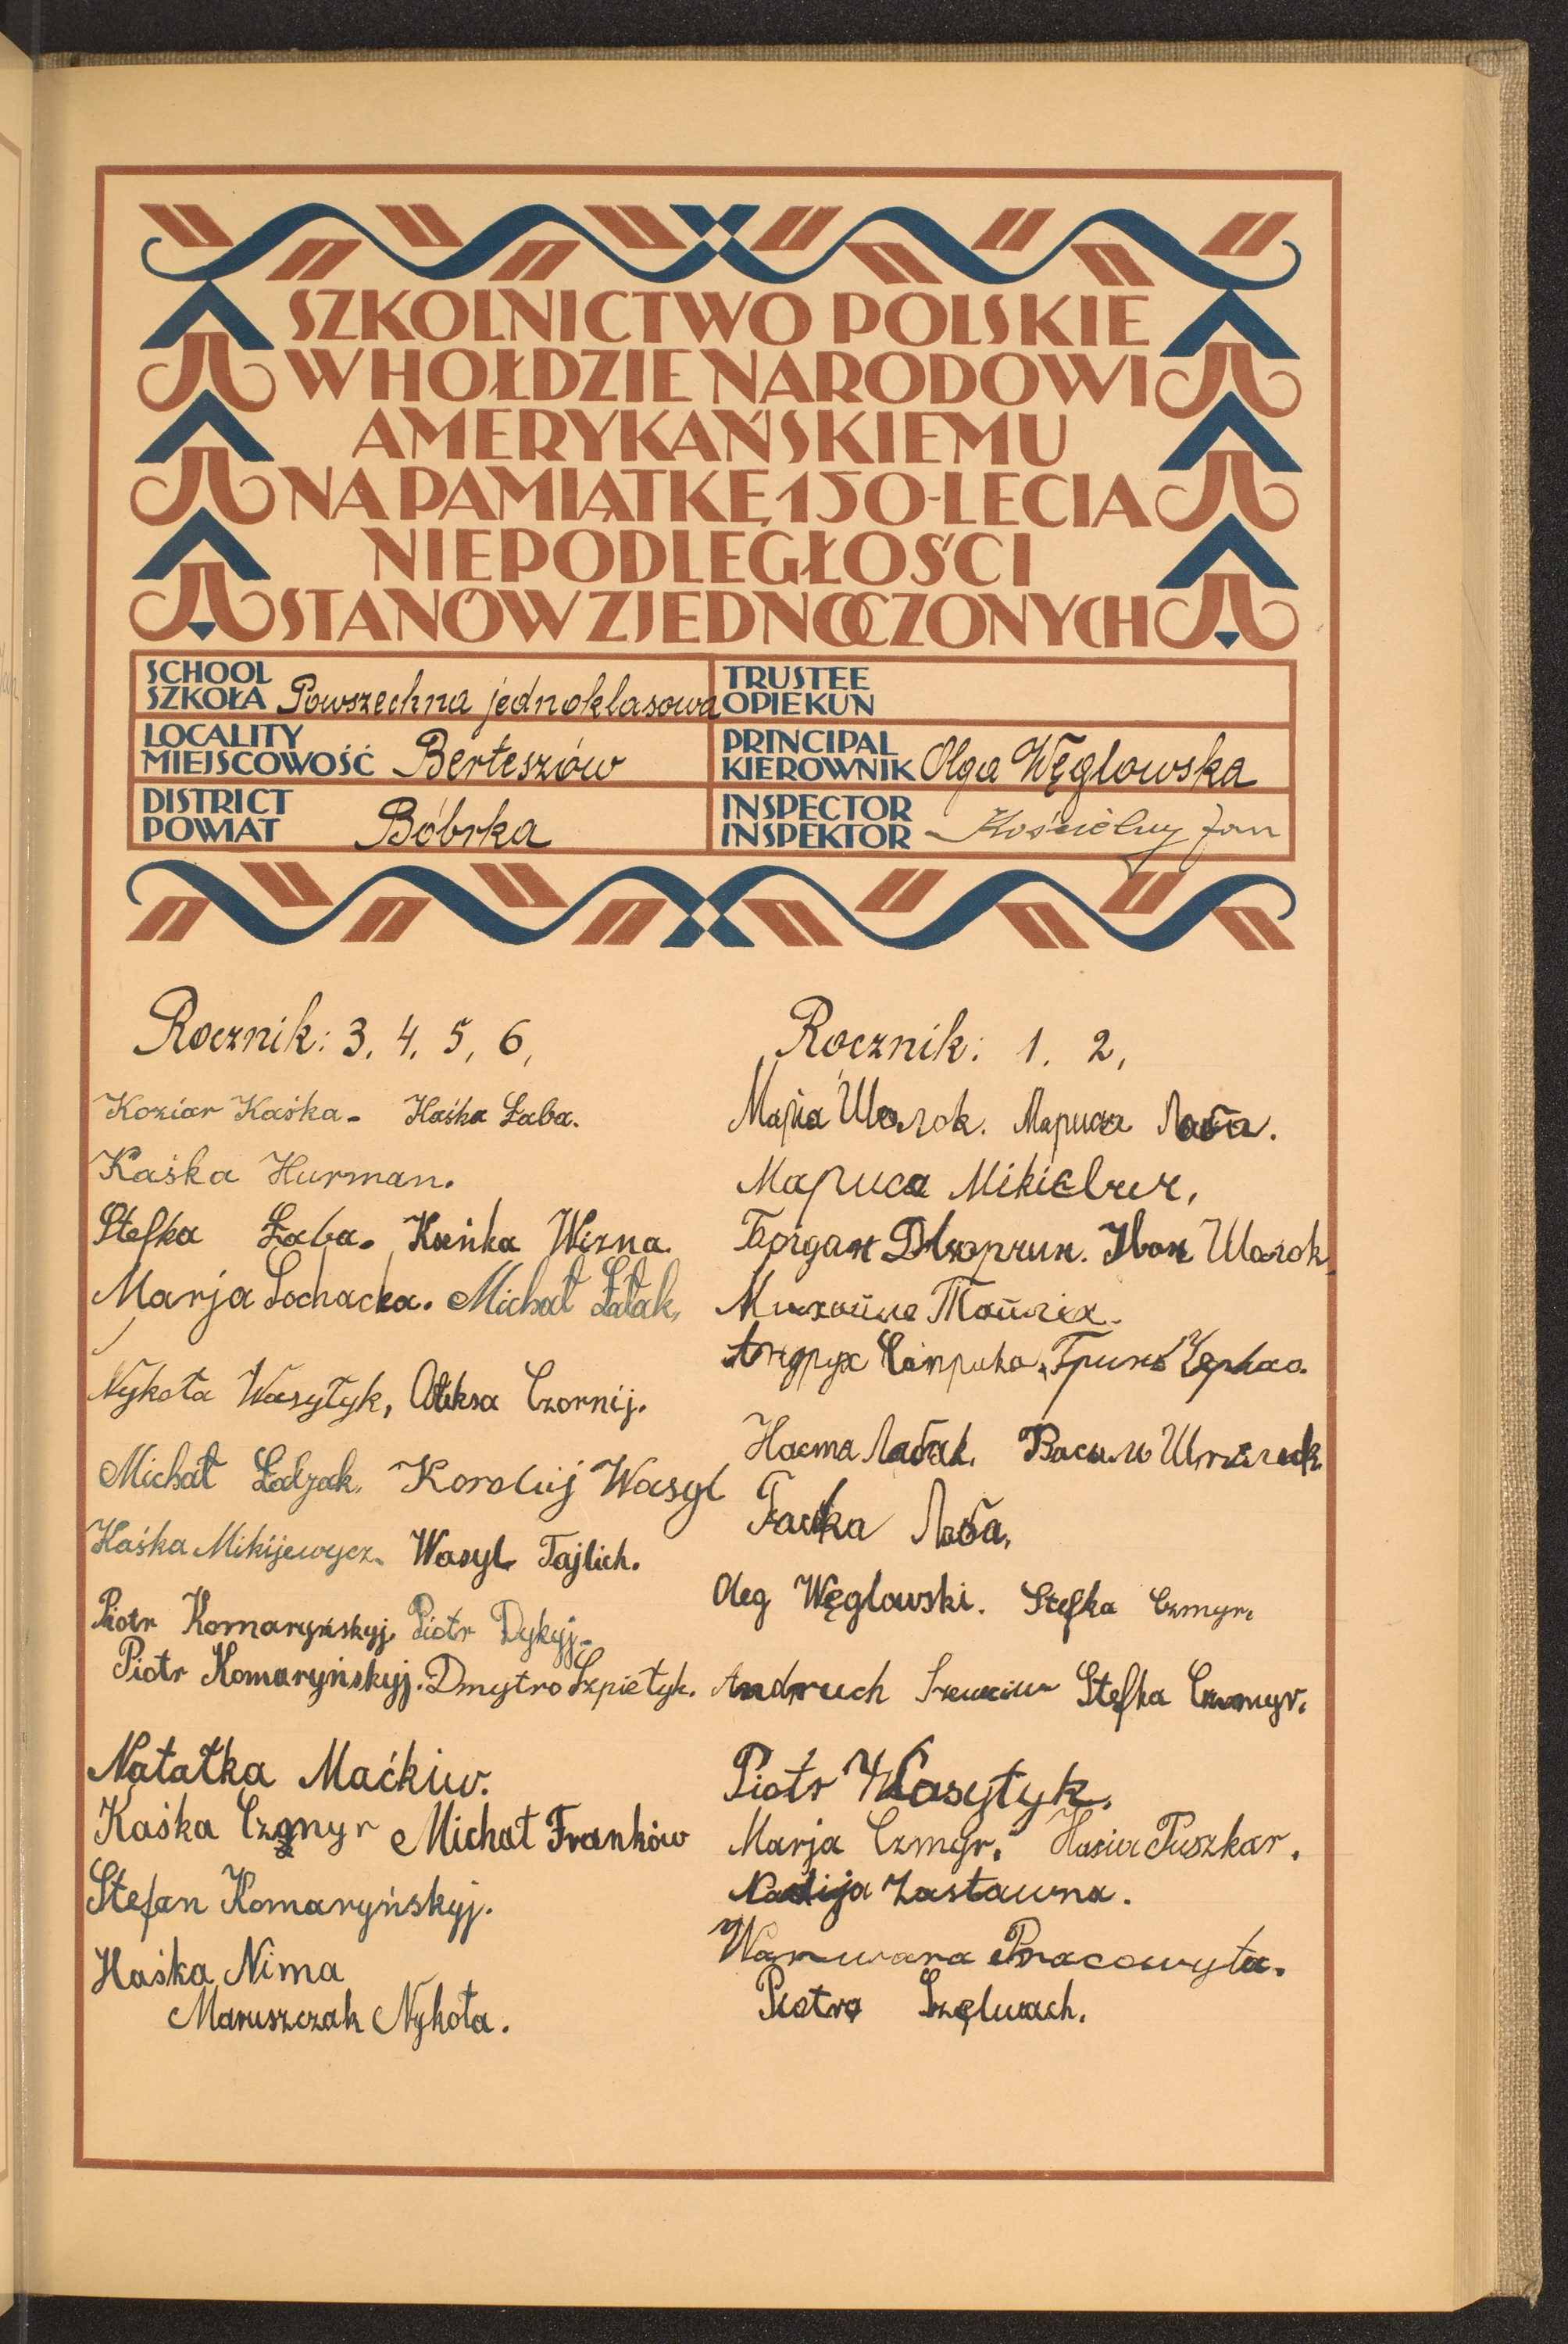 SZKOLNICTWO POLSKIE
W HOŁDZIE NARODOWI
AMERYKAŃSKIEMU
NA PAMIĄTKĘ 150-LECIA
NIEPODLEGŁOŚCI
STANÓW ZJEDNOCZONYCH
SCHOOL
SZKOŁA Powszechna jednoklasowa
TRUSTEE
OPIEKUN
LOCALITY
MIEJSCOWOŚĆ Berteszów
PRINCIPAL
KIEROWNIK Olga Węglowska
DISTRICT
POWIAT Bóbrka
INSPECTOR
INSPEKTOR Kościelny Jan
Rocznik: 3. 4. 5, 6,
Koziar Kaśka - Haśka Łaba.
Kaśka Hurman.
Stefka Łaba. Kseńka Wizna.
Marja Sochacka. Michał Łatak,
Nykoła Wasyłyk, Ołeksa Czornij.
Michał Koroluj Wasyl
Haśka Mikijewycz. Wasyl Tajlich.
Piotr Komaryńskyj. Piotr Dykyj.
Piotr Komaryńskyj. Dmytro Szpietyk.
Natałka Maćkiw.
Kaśka Czmyr Michał Franków
Stefan Komaryńskyj.
Haśka Nima
Maruszczak Nykoła.
Rocznik: 1. 2,
Марія Шолок. Мариса Лаба.
Мариса
Богдан Іван Шолок
Гринь
Настя Василь
Ганка Лаба,
Oleg Węglowski. Stefka Czmyr.
Andruch Stefka Czmyr.
Piotr Wasyłyk.
Marja Czmyr. Hasia Puszkar.
Nadija Zastawna.
Warwara Pracowyta.
Piotro